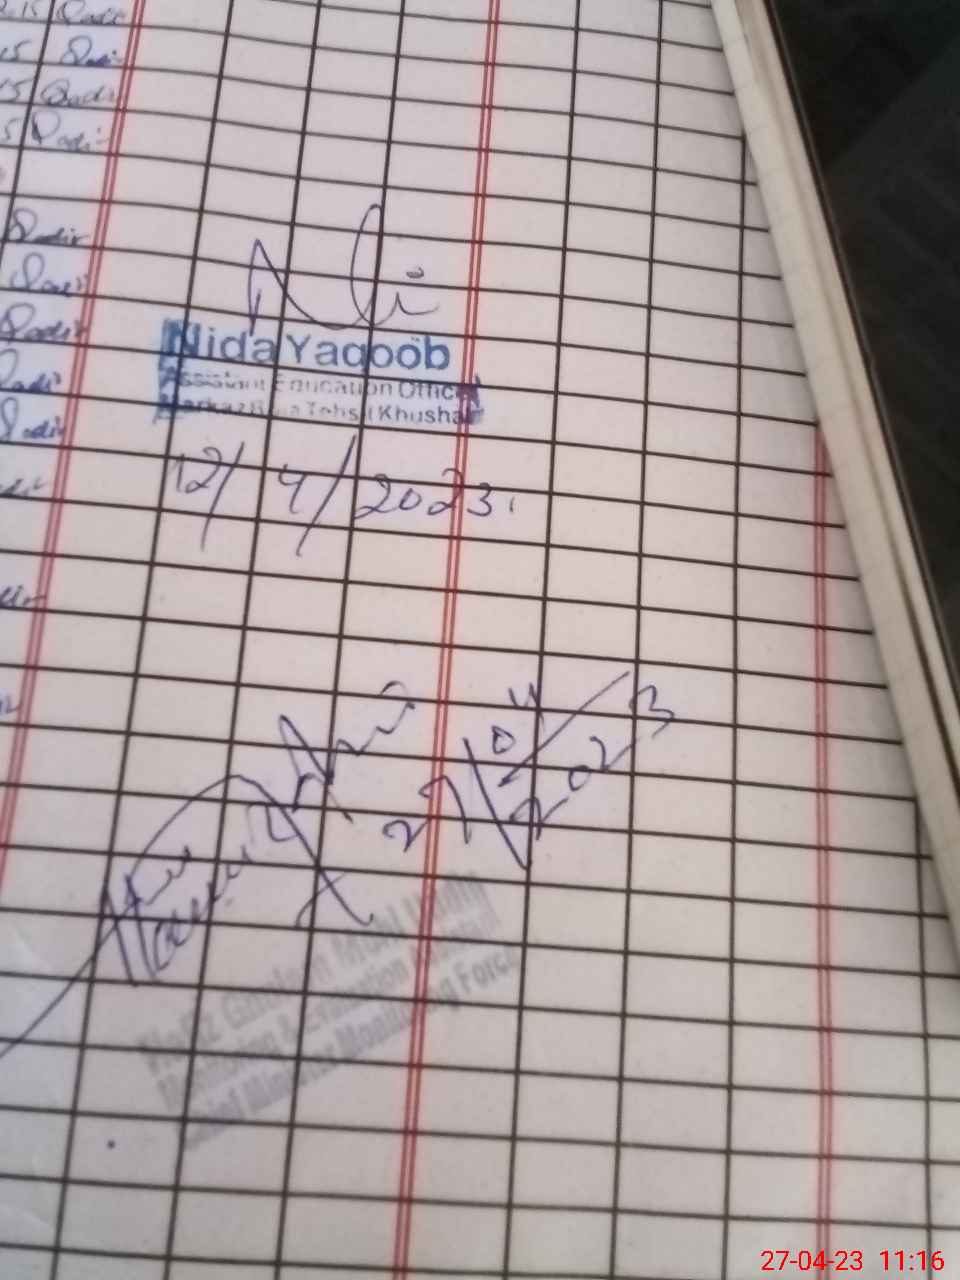 2.15 Qadir
15 Qadir
15 Qadir
5 Qadir
Qadir
Qadir
Qadir
Qadir
Qadir
Nida Yaqoob
Assistant Education Officer
Markaz Tehsil Khushab
12/4/2023
27/04/2023
Hafiz Ghulam Mohi Uddin
Monitoring & Evaluation Assistant
Chief Minister Monitoring Force
27-04-23 11:16